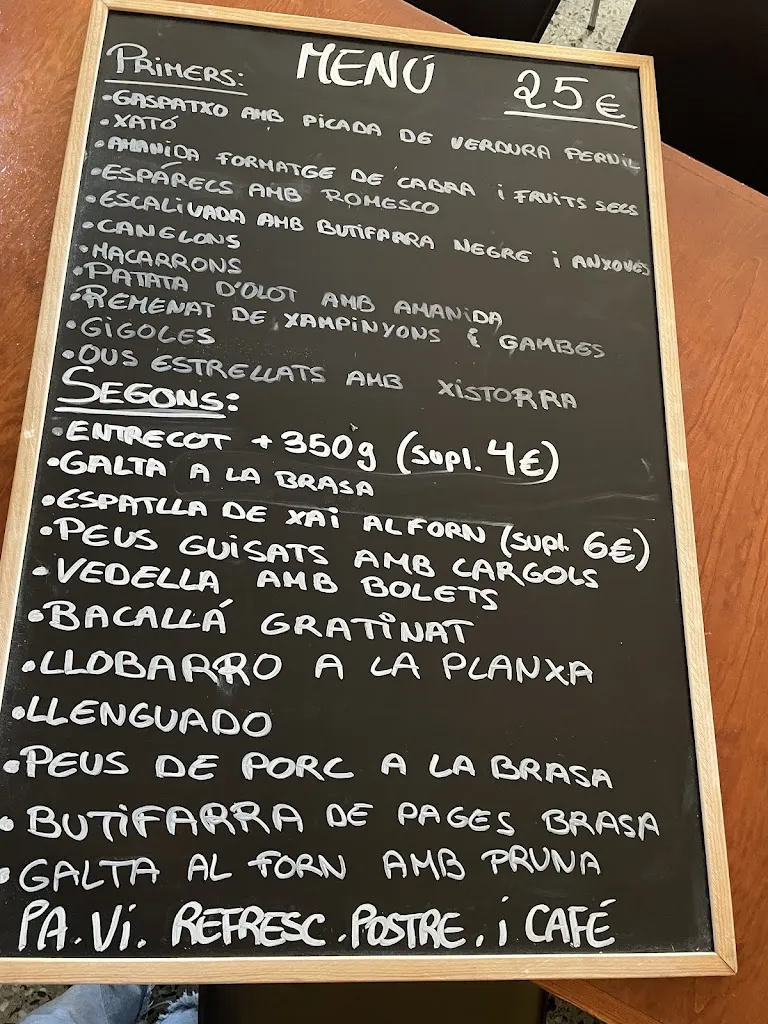 MENÚ
PRIMERS:
25€
•GASPATXO AMB PICADA DE VERDURA PERNIL
•XATÓ
•AMANIDA FORMATGE DE CABRA i FRUITS SECS
•ESPÁRECS AMB ROMESCO
•ESCALIVADA AMB BUTIFARRA NEGRE i ANXOVES
•CANELONS
•MACARRONS
•PATATA D'OLOT AMB AMANIDA
•REMENAT DE XAMPINYONS i GAMBES
•GIGOLES
•OUS ESTRELLATS AMB XISTORRA
SEGONS:
•ENTRECOT +350g (supl. 4€)
•GALTA A LA BRASA
•ESPATLLA DE XAI AL FORN (supl. 6€)
•PEUS GUISATS AMB CARGOLS
•VEDELLA AMB BOLETS
•BACALLÁ GRATINAT
•LLOBARRO A LA PLANXA
•LLENGUADO
•PEUS DE PORC A LA BRASA
•BUTIFARRA DE PAGES BRASA
•GALTA AL FORN AMB PRUNA
PA.Vi. REFRESC.POSTRE.i CAFÉ